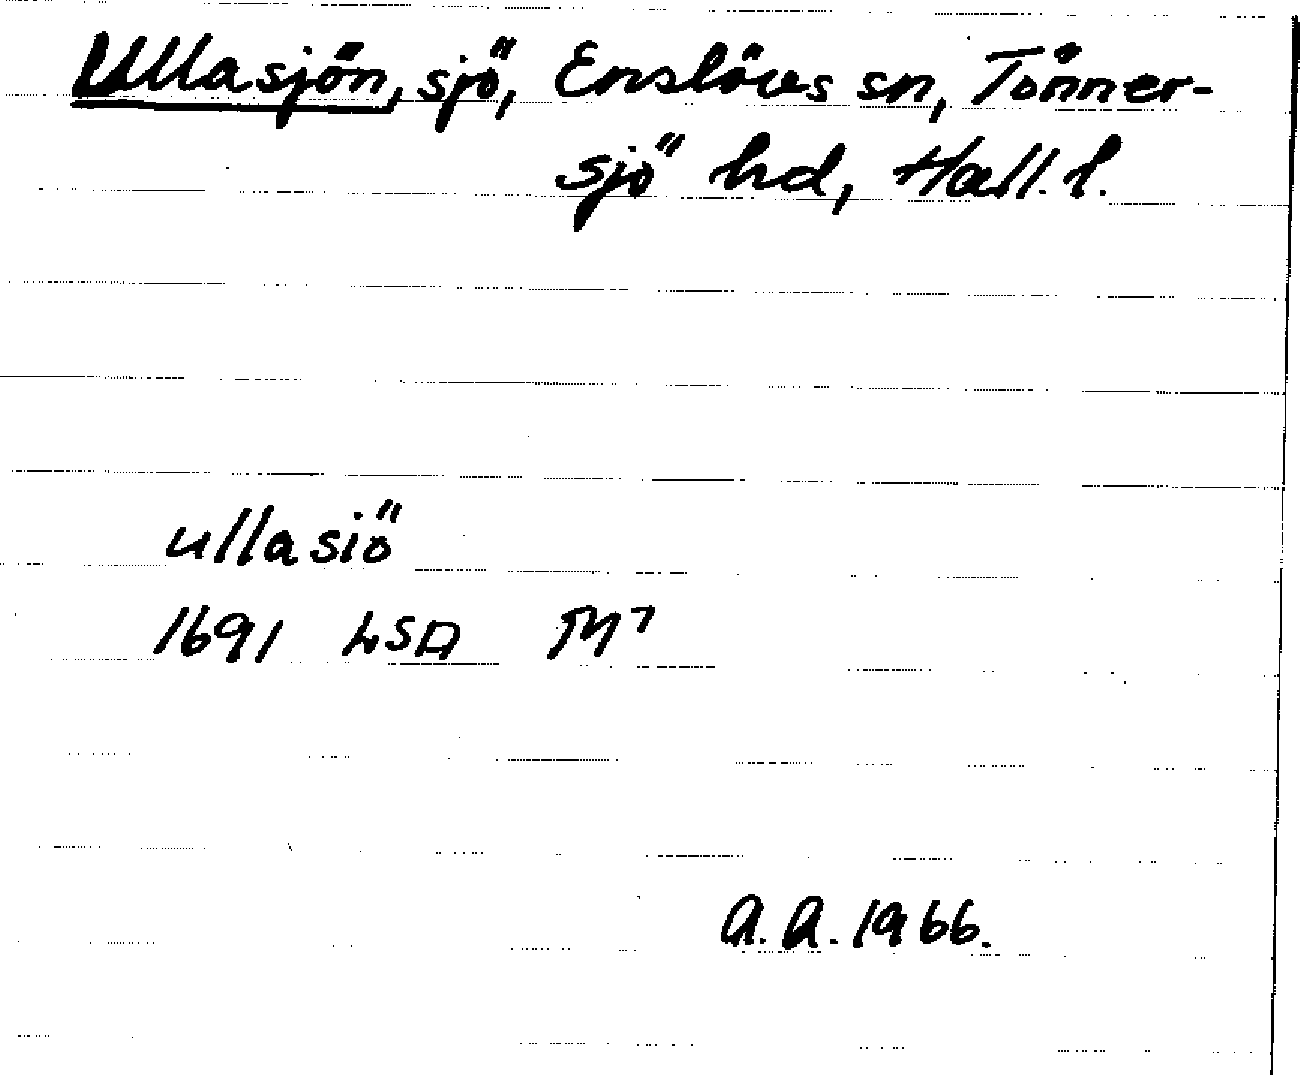 Ullasjön, sjö, Enslövs sn, Tönner-
sjö hd, Hall. l.
ullasiö
1691 LSA M7
A.A. 1966.